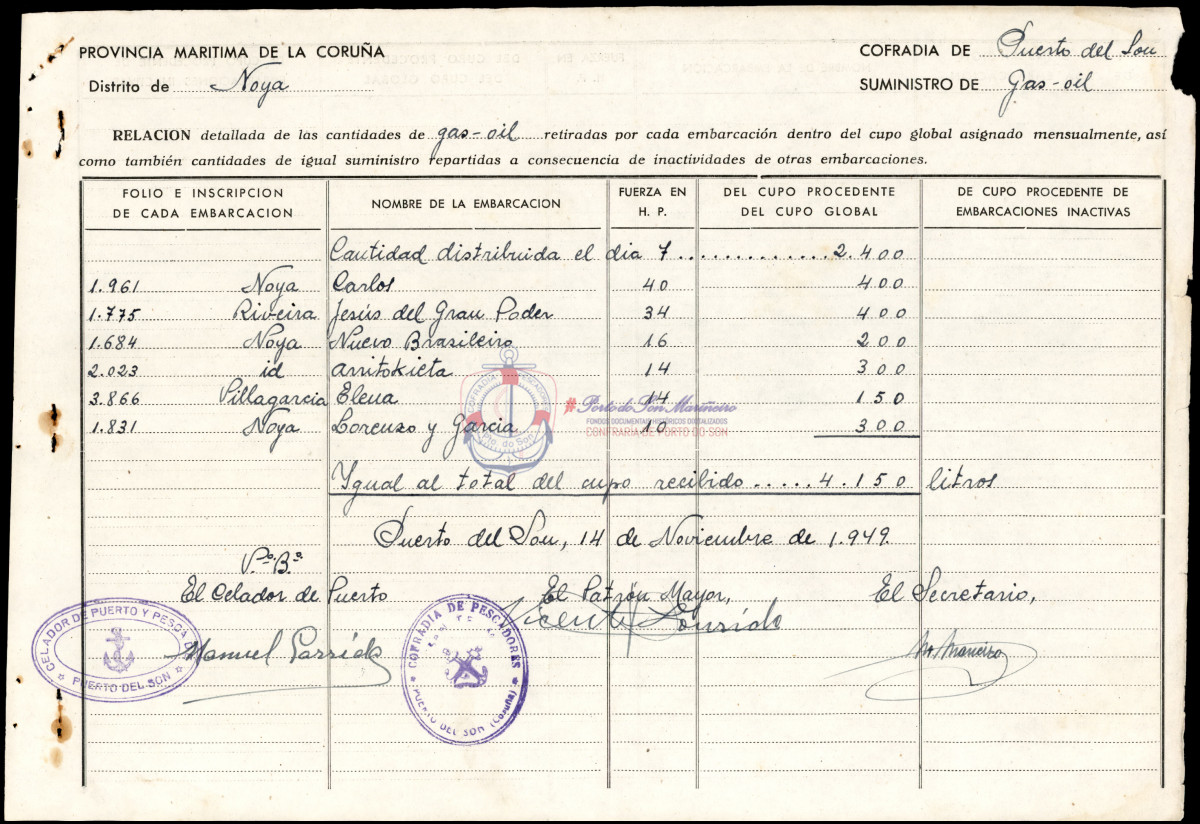 PROVINCIA MARITIMA DE LA CORUÑA
COFRADIA DE Puerto del Son
Distrito de Noya
SUMINISTRO DE Gas-oil
RELACION detallada de las cantidades de gas-oil retiradas por cada embarcación dentro del cupo global asignado mensualmente, así
como también cantidades de igual suministro repartidas a consecuencia de inactividades de otras embarcaciones.
FOLIO E INSCRIPCION DE CADA EMBARCACION
NOMBRE DE LA EMBARCACION
FUERZA EN H. P.
DEL CUPO PROCEDENTE DEL CUPO GLOBAL
DE CUPO PROCEDENTE DE EMBARCACIONES INACTIVAS
Cantidad distribuida el dia 7 ............. 2.400
1.961 Noya Carlos 40 400
1.775 Riveira Jesús del Gran Poder 34 400
1.684 Noya Nuevo Brasileiro 16 200
2.023 id arritokieta 14 300
3.866 Villagarcia Elena 14 150
1.831 Noya Lorenzo y Garcia 10 300
COFRADIA PESCADORES
Pto. do Son
#Porto do Son Mariñeiro
FONDOS DOCUMENTAIS HISTÓRICOS DIXITALIZADOS
CONFRARÍA DE PORTO DO SON
Igual al total del cupo recibido ..... 4.150 litros
Puerto del Son, 14 de Noviembre de 1.949.
Vº. Bº.
El Celador de Puerto
El Patrón Mayor,
El Secretario,
CELADOR DE PUERTO Y PESCA
PUERTO DEL SON
Manuel Parrido
COFRADIA DE PESCADORES
PUERTO DEL SON (Coruña)
Vicente Lourido